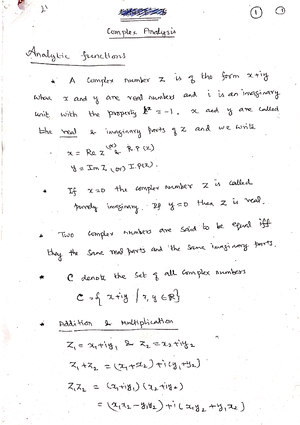 ① ①
Complex Analysis
Analytic functions
* A Complex number z is of the form x+iy
where x and y are real numbers and i is an imaginary
unit with the property i² = -1. x and y are called
the real & imaginary parts of z and we write
x = Re z (or) R.P(z)
y = Im z (or) I.P(z).
* If x=0 the complex number z is called
purely imaginary. If y=0 then z is real.
* Two complex numbers are said to be equal iff
they the same real parts and the same imaginary parts.
* C denote the set of all complex numbers
C = { x+iy / x, y ∈ R}
* Addition & Multiplication
z₁ = x₁+iy₁ & z₂ = x₂+iy₂
z₁+z₂ = (x₁+x₂)+i(y₁+y₂)
z₁z₂ = (x₁+iy₁)(x₂+iy₂)
= (x₁x₂-y₁y₂)+i(x₁y₂+y₁x₂)